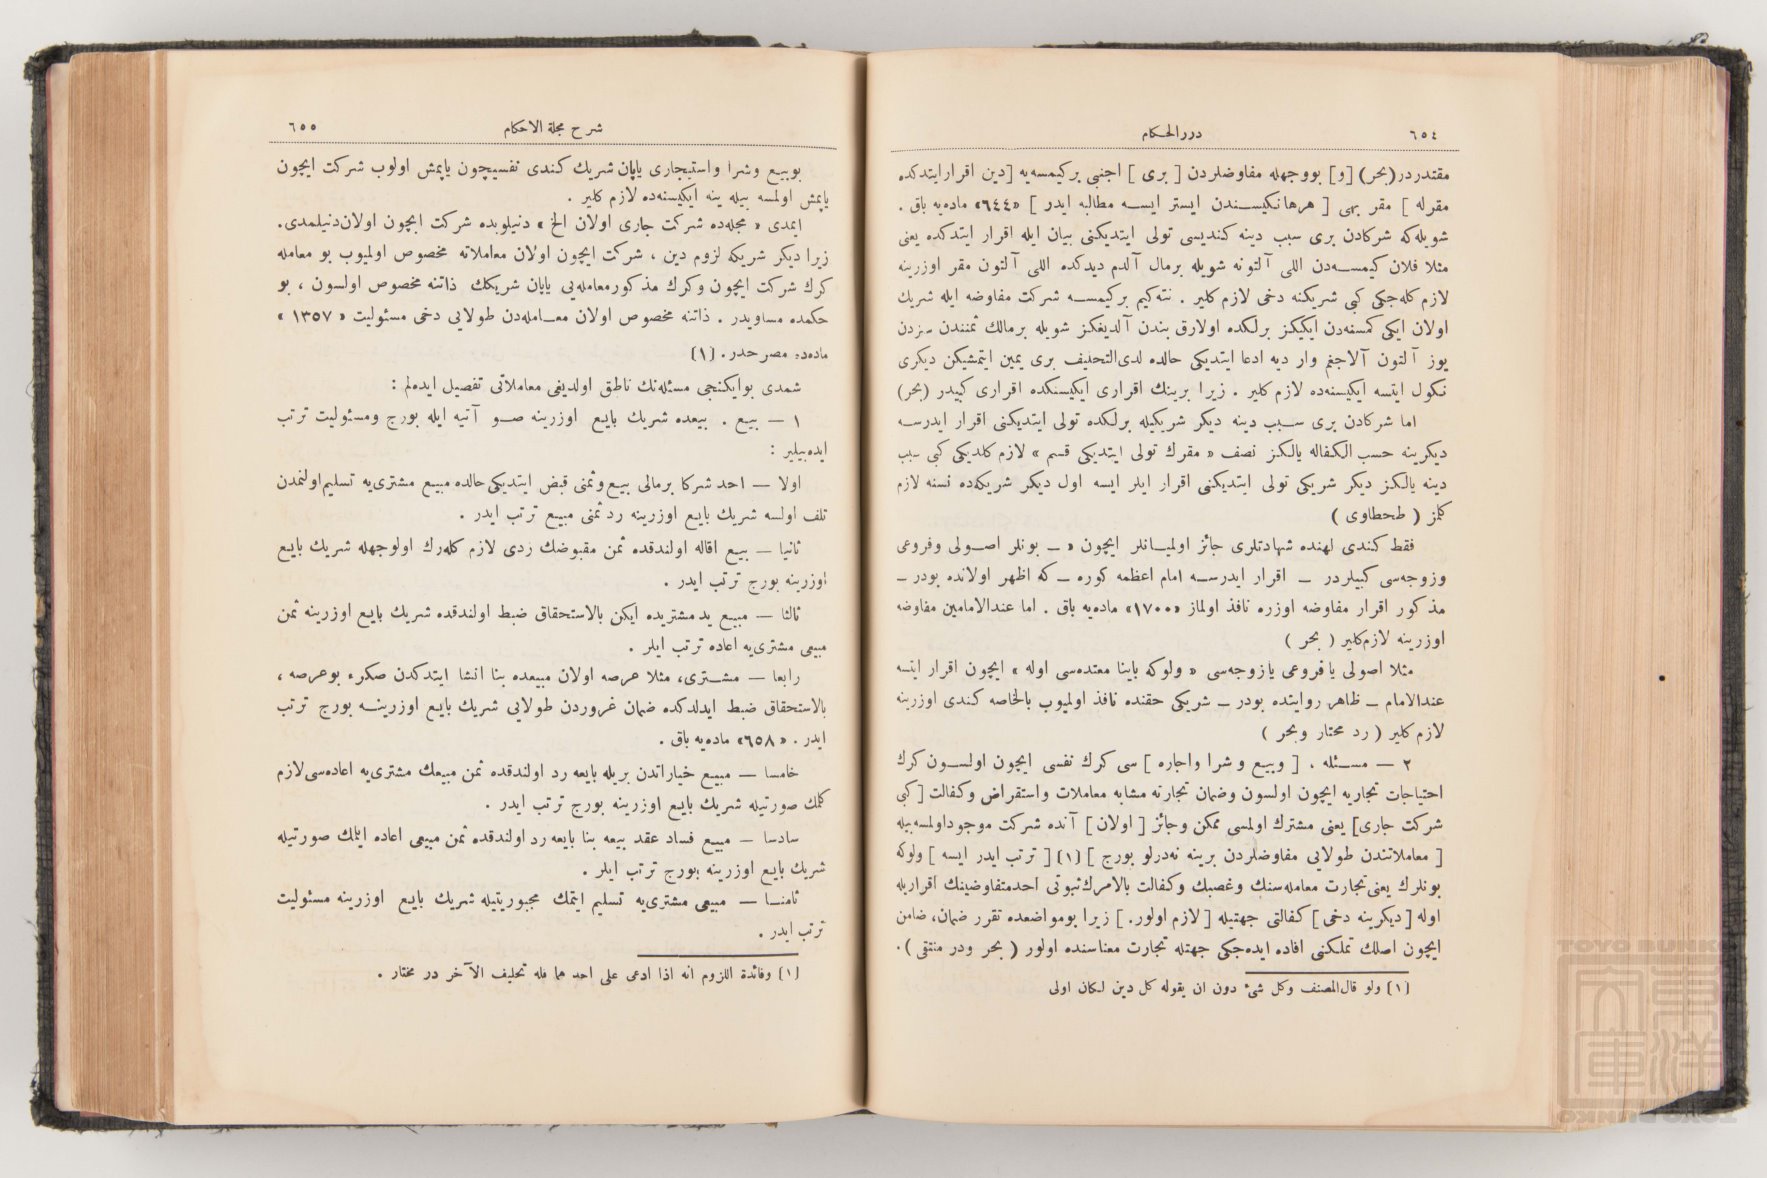 ٦٥٤
دررالحكام
مقتدردر(بحر) [و] بووجهله مفاوضلردن [ برى ] اجنبى بركيمسه‌يه [دين اقرارايتدكده
مقرله ] مقر بهى [ هرهانكيسندن ايستر ايسه مطالبه ايدر ] «٦٤٤» ماده‌يه باق .
شويله‌كه شركادن برى سبب دينه كنديسى تولى ايتديكنى بيان ايله اقرار ايتدكده يعنى
مثلا فلان كيمسه‌دن اللى آلتونه شويله برمال آلدم ديدكده اللى آلتون مقر اوزرينه
لازم كله‌جكى كبى شريكنه دخى لازم كلير . نته‌كيم بركيمسه شركت مفاوضه ايله شريك
اولان ايكى كمسنه‌دن ايكيكز برلكده اولارق بندن آلديغكز شويله برمالك ثمنندن سزدن
يوز آلتون آلاجغم وار ديه ادعا ايتديكى حالده لدى‌التحليف برى يمين ايتمشيكن ديكرى
نكول ايتسه ايكيسنه‌ده لازم كلير . زيرا برينك اقرارى ايكيسنكده اقرارى كبيدر (بحر)
اما شركادن برى سبب دينه ديكر شريكيله برلكده تولى ايتديكنى اقرار ايدرسه
ديكرينه حسب الكفاله يالكز نصف « مقرك تولى ايتديكى قسم » لازم كلديكى كبى سبب
دينه يالكز ديكر شريكى تولى ايتديكنى اقرار ايلر ايسه اول ديكر شريكه‌ده نسنه لازم
كلمز ( طحطاوى )
فقط كندى لهنده شهادتلرى جائز اولميانلر ايچون « ــ بونلر اصولى وفروعى
وزوجه‌سى كبيلردر ــ اقرار ايدرسه امام اعظمه كوره ــ كه اظهر اولانده بودر ــ
مذكور اقرار مفاوضه اوزره نافذ اولماز «١٧٠٠» ماده‌يه باق . اما عندالامامين مفاوضه
اوزرينه لازم‌كلير ( بحر )
مثلا اصولى يافروعى يازوجه‌سى « ولوكه بايناً معتده‌سى اوله » ايچون اقرار ايتسه
عندالامام ــ ظاهر روايتده بودر ــ شريكى حقنده نافذ اولميوب بالخاصه كندى اوزرينه
لازم كلير ( رد محتار وبحر )
٢ ــ مسئله . [ وبيع و شرا واجاره ] سى كرك نفسى ايچون اولسون كرك
احتياجات تجاريه ايچون اولسون وضمان تجارته مشابه معاملات واستقراض وكفالت [كبى
شركت جارى] يعنى مشترك اولمسى ممكن وجائز [ اولان ] آنده شركت موجوداولمسه‌بيله
[ معاملاتندن طولايى مفاوضلردن برينه نه‌درلو بورج ] (١) [ ترتب ايدر ايسه ] ولوكه
بونلرك يعنى تجارت معامله‌سنك وغصبك وكفالت بالامرك‌ثبوتى احدمتفاوضينك اقراريله
اوله [ديكرينه دخى] كفالتى جهتيله [لازم اولور.] زيرا بومواضعده تقرر ضمان، ضامن
ايچون اصلك تملكنى افاده ايده‌جكى جهتله تجارت معناسنده اولور ( بحر ودر منتقى ) .
(١) ولو قال‌المصنف وكل شىء دون ان يقوله كل دين لكان اولى
شرح مجلة الاحكام
٦٥٥
بوبيع وشرا واستيجارى ياپان شريك كندى نفسيچون ياپمش اولوب شركت ايچون
ياپمش اولمسه بيله ينه ايكيسنه‌ده لازم كلير .
ايمدى « مجله‌ده شركت جارى اولان الخ » دنيلوبده شركت ايچون اولان‌دنيلمدى.
زيرا ديكر شريكه لزوم دين ، شركت ايچون اولان معاملاته مخصوص اولميوب بو معامله
كرك شركت ايچون وكرك مذكورمعامله‌يى ياپان شريكك ذاتنه مخصوص اولسون ، بو
حكمده مساويدر . ذاتنه مخصوص اولان معامله‌دن طولايى دخى مسئوليت « ١٣٥٧ »
ماده‌ده مصرحدر. (١)
شمدى بوايكنجى مسئله‌نك ناطق اولديغى معاملاتى تفصيل ايده‌لم :
١ ــ بيع . بيعده شريك بايع اوزرينه صو آتيه ايله بورج ومسئوليت ترتب
ايده‌بيلير :
اولا ــ احد شركا برمالى بيع وثمنى قبض ايتديكى حالده مبيع مشترى‌يه تسليم‌اولنمدن
تلف اولسه شريك بايع اوزرينه رد ثمنى مبيع ترتب ايدر .
ثانيا ــ بيع اقاله اولندقده ثمن مقبوضك ردى لازم كله‌رك اولوجهله شريك بايع
اوزرينه بورج ترتب ايدر .
ثالثا ــ مبيع يد مشتريده ايكن بالاستحقاق ضبط اولندقده شريك بايع اوزرينه ثمن
مبيعى مشترى‌يه اعاده ترتب ايلر .
رابعا ــ مشترى، مثلا عرصه اولان مبيعده بنا انشا ايتدكدن صكره بوعرصه ،
بالاستحقاق ضبط ايدلدكده ضمان غروردن طولايى شريك بايع اوزرينه بورج ترتب
ايدر . «٦٥٨» ماده‌يه باق .
خامسا ــ مبيع خياراتدن بريله بايعه رد اولندقده ثمن مبيعك مشترى‌يه اعاده‌سى‌لازم
كلمك صورتيله شريك بايع اوزرينه بورج ترتب ايدر .
سادسا ــ مبيع فساد عقد بيعه بنا بايعه رد اولندقده ثمن مبيعى اعاده ايتمك صورتيله
شريك بايع اوزرينه بورج ترتب ايلر .
ثامنا ــ مبيعى مشترى‌يه تسليم ايتمك مجبوريتيله شريك بايع اوزرينه مسئوليت
ترتب ايدر .
(١) وفائدة اللزوم انه اذا ادعى على احد هما فله تحليف الآخر در مختار .
TOYO BUNKO
東洋文庫